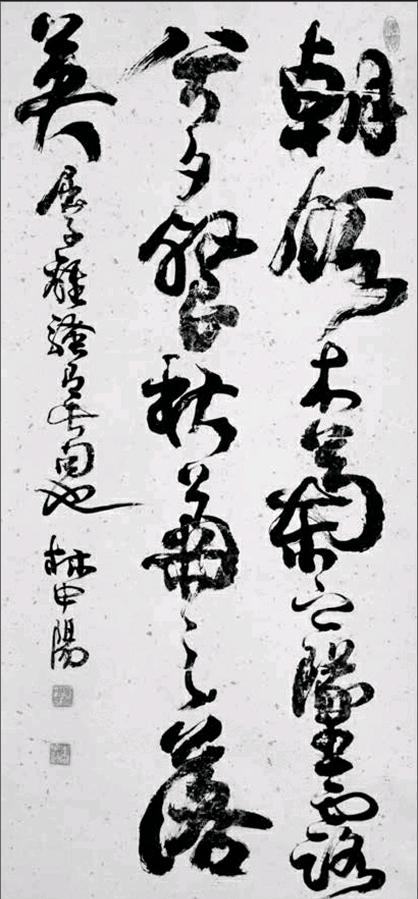 朝飲木蘭之墜露
兮夕餐秋菊之落
英
屈子離騷句也
林中陽